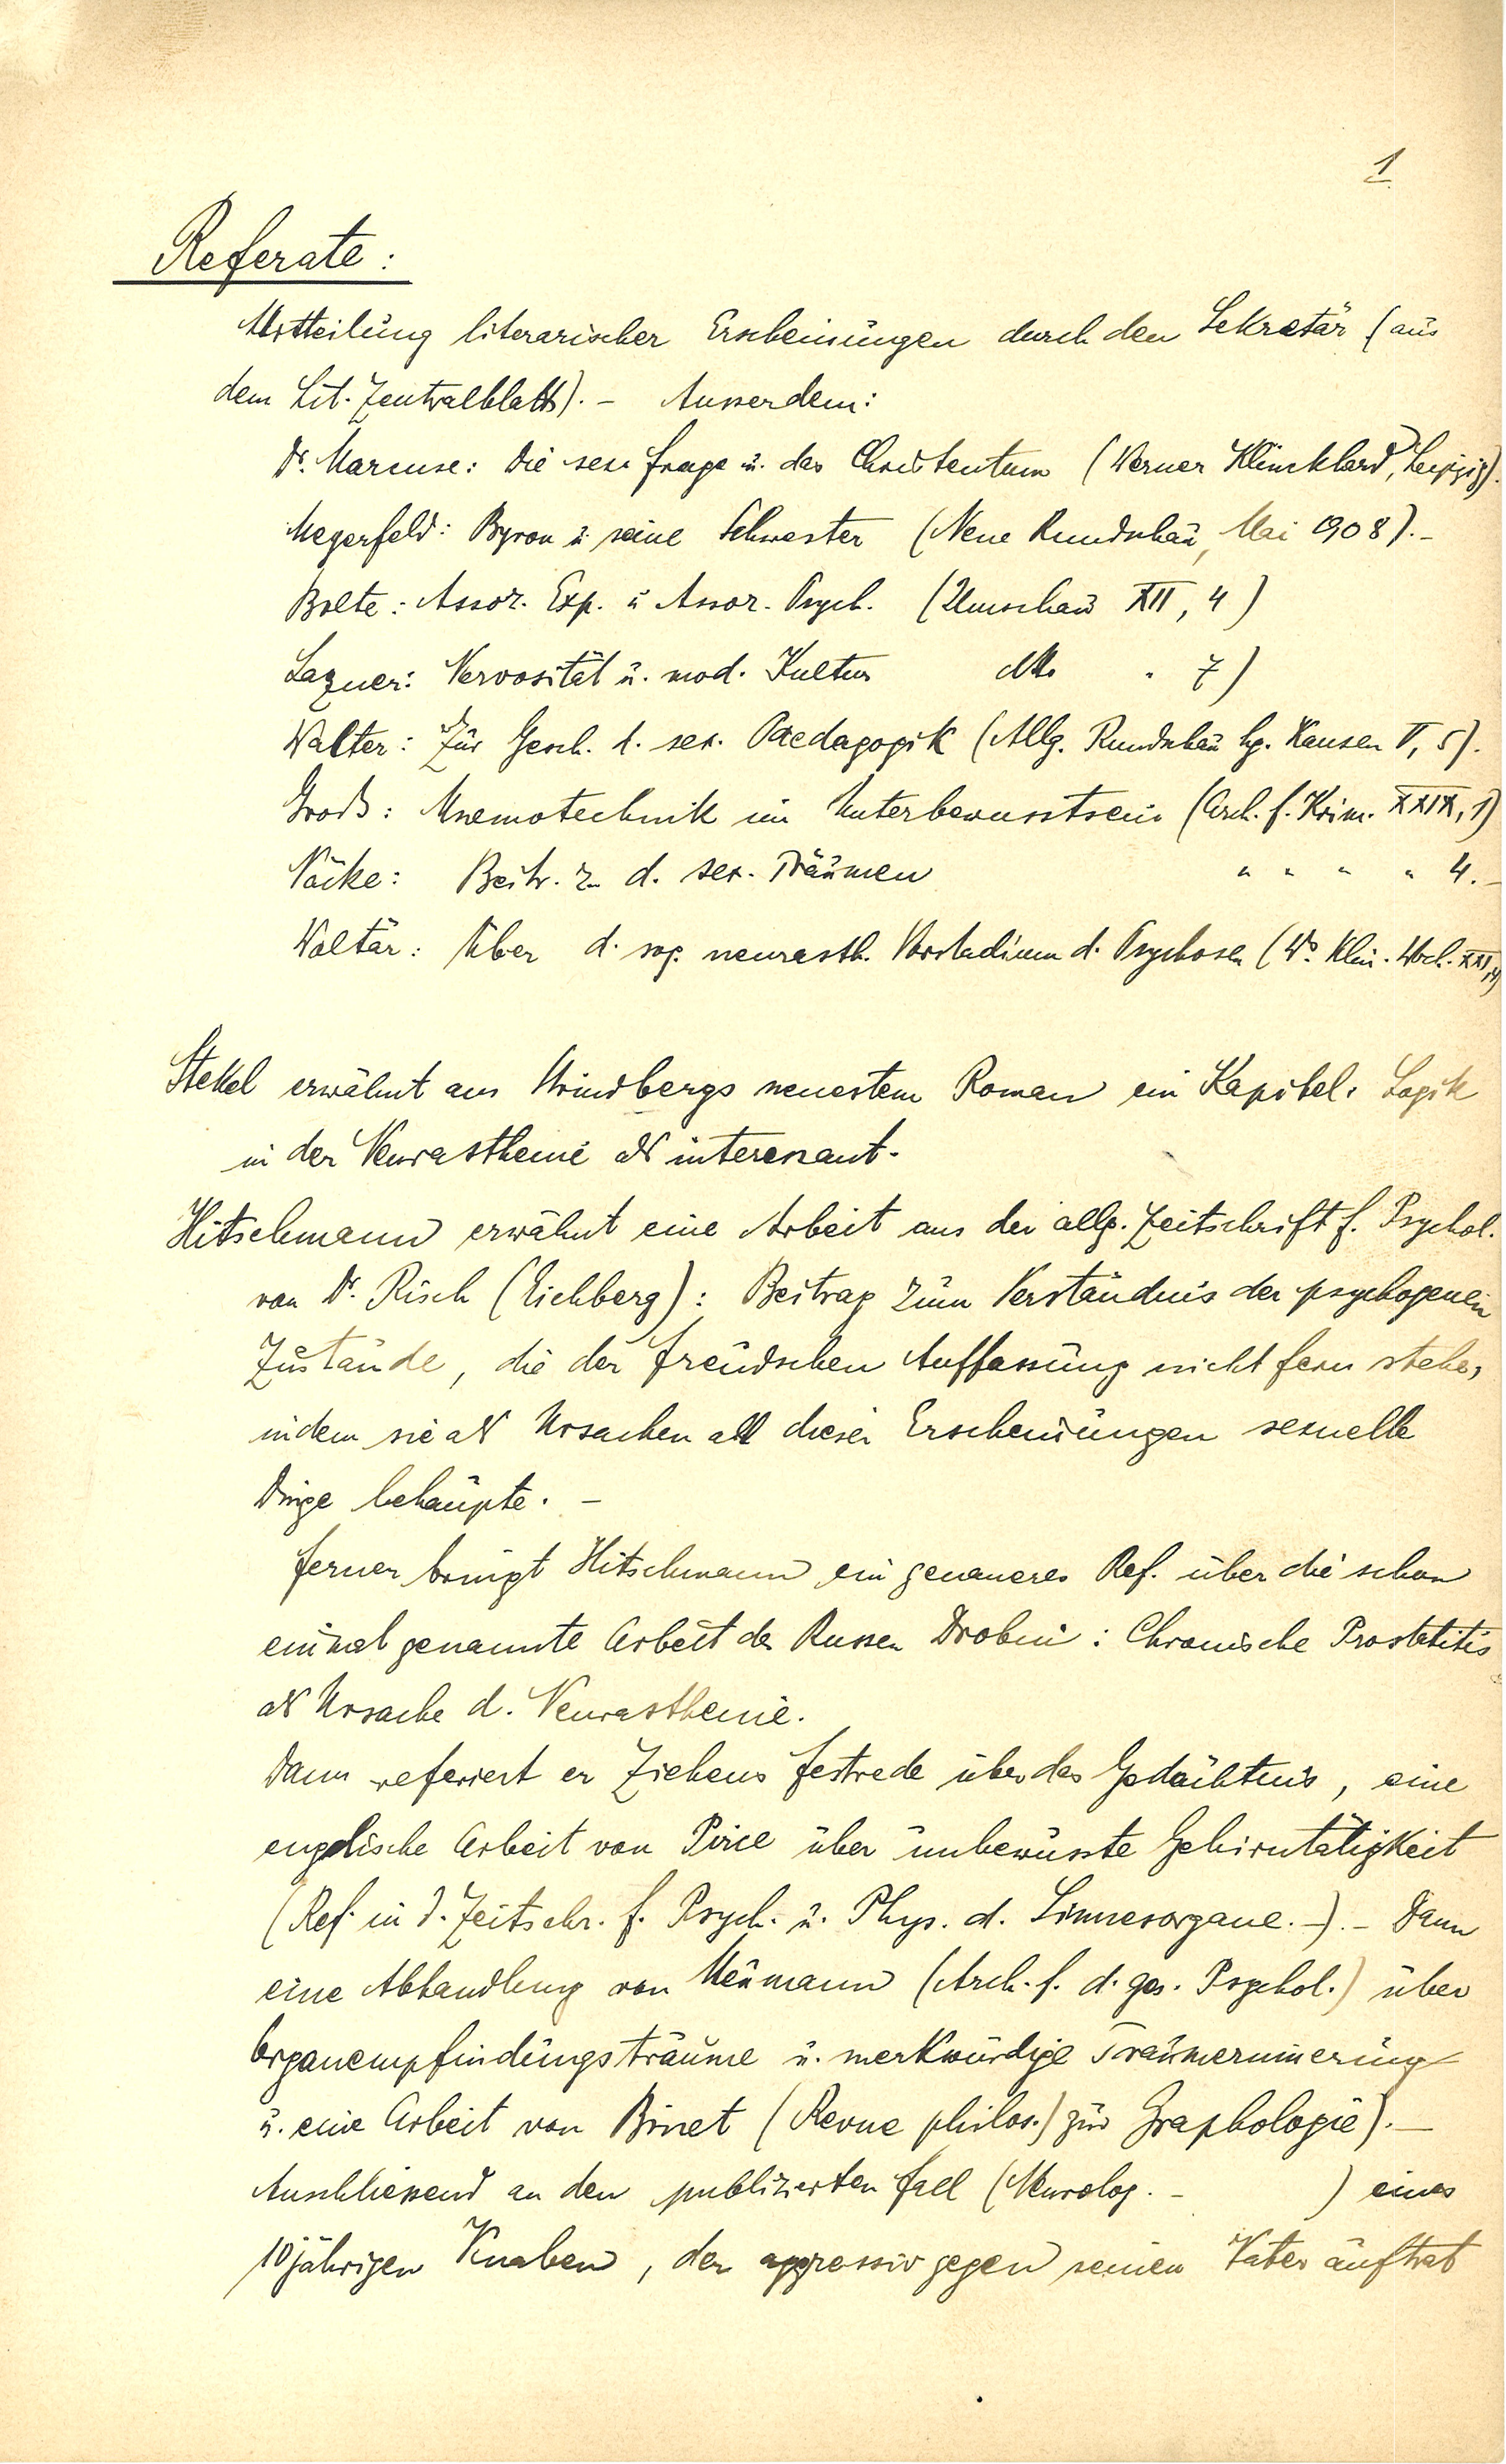 1
Referate:
Mitteilung literarischer Erscheinungen durch den Sekretär (aus
dem Lit. Zentralblatt). – Ausserdem:
Dr. Marcuse: Die sex. Frage u. das Christentum (Werner Klinckhard, Leipzig).
Meyerfeld: Byron u. seine Schwester (Neue Rundschau, Mai 1908). –
Bolte: Assoz. Exp. u. Assoz. Psych. (Umschau XII, 4)
Lazuer: Nervosität u. mod. Kultur dtto " 7)
Walter: Zur Gesch. d. sex. Paedagogik (Allg. Rundschau hg. Kausen V, 5).
Groß: Mnemotechnik im Unterbewusstsein (Arch. f. Krim. XXIX, 1)
Näcke: Beitr. z. d. sex. Träumen " " " " 4. –
Woltär: Über d. sog. neurasth. Vorstadium d. Psychosen (Wr. Klin. Woch. XXI,
Stekel erwähnt aus Strindbergs neuestem Roman ein Kapitel: Logik
in der Neurasthenie als interessant.
Hitschmann erwähnt eine Arbeit aus der allg. Zeitschrift f. Psychol.
von Dr. Risch (Eichberg): Beitrag zum Verständnis der psychogenen
Zustände, die der freudschen Auffassung nicht fern stehe,
indem sie als Ursachen all dieser Erscheinungen sexuelle
Dinge behaupte. –
ferner bringt Hitschmann ein genaueres Ref. über die schon
einmal genannte Arbeit des Russen Drobni: Chronische Prostatitis
als Ursache d. Neurasthenie.
Dann referiert er Ziehens Festrede über das Gedächtnis, eine
englische Arbeit von Pirce über unbewusste Gehirntätigkeit
(Ref. in d. Zeitschr. f. Psych. u. Phys. d. Sinnesorgane. –). – Dann
eine Abhandlung von Meumann (Arch. f. d. ges. Psychol.) über
Organempfindungsträume u. merkwürdige Traumerinnerung
u. eine Arbeit von Binet (Revue philos.) zur Graphologie). –
Anschliessend an den publizierten Fall (Neurolog. – ) eines
10jährigen Knaben, der aggressiv gegen seinen Vater auftrat